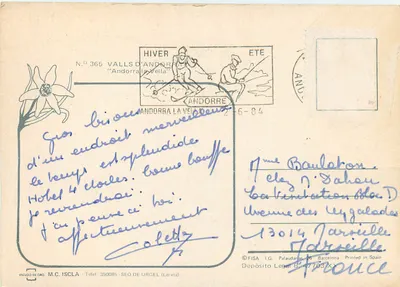 N.º 365 VALLS D'ANDOR
"Andorra la Vella"
HIVER ETE
ANDORRE
ANDORRA LA VE
-6-84
AND
Gros bisous
d'un endroit merveilleux
le temps est splendide
Hotel 4 étoiles. bonne bouffe
je reviendrai!
J'ai pensé à toi
affectueusement
Colette
Mme Baulaton
chez Mr Dahan
La Visitation Bloc D
Avenue des Aygalades
13014 Marseille
Marseille
France
M.C. ISCLA
Printed in Spain
Depósito Legal